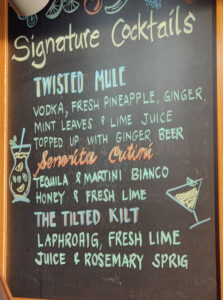 Signature Cocktails
TWISTED MULE
VODKA, FRESH PINEAPPLE, GINGER,
MINT LEAVES & LIME JUICE
TOPPED UP WITH GINGER BEER
Senorita Cutini
TEQUILA & MARTINI BIANCO
HONEY & FRESH LIME
THE TILTED KILT
LAPHROAIG, FRESH LIME
JUICE & ROSEMARY SPRIG